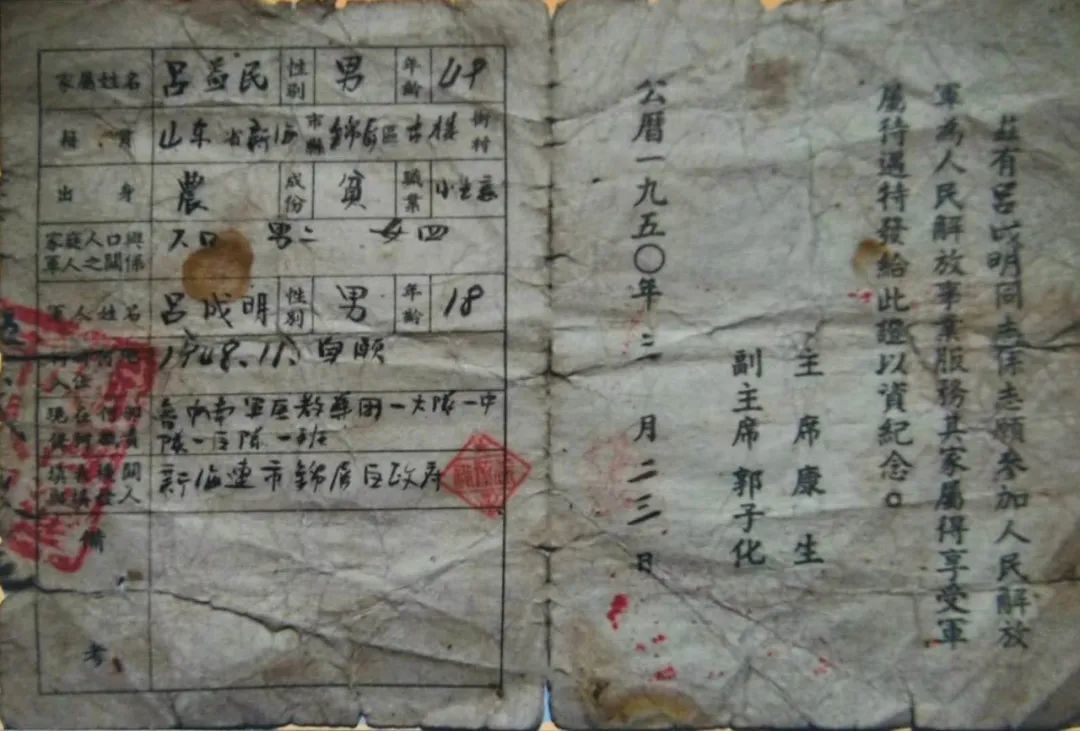 茲有呂成明同志係志願參加人民解放
軍為人民解放事業服務其家屬得享受軍
屬待遇特發給此證以資紀念。
主席康生
副主席郭子化
公曆一九五〇年三月二三日
家屬姓名 呂益民 性别 男 年齡 49
籍貫 山东省新海市縣錦屏區 街村
出身 農 成份 貧 職業
家庭人口與軍人之關係 六口 男二 女四
軍人姓名 呂成明 性别 男 年齡 18
1948.11. 自願
魯中南軍区教導团一大隊一中
隊一区隊一班
新海連市錦屏区政府
備考